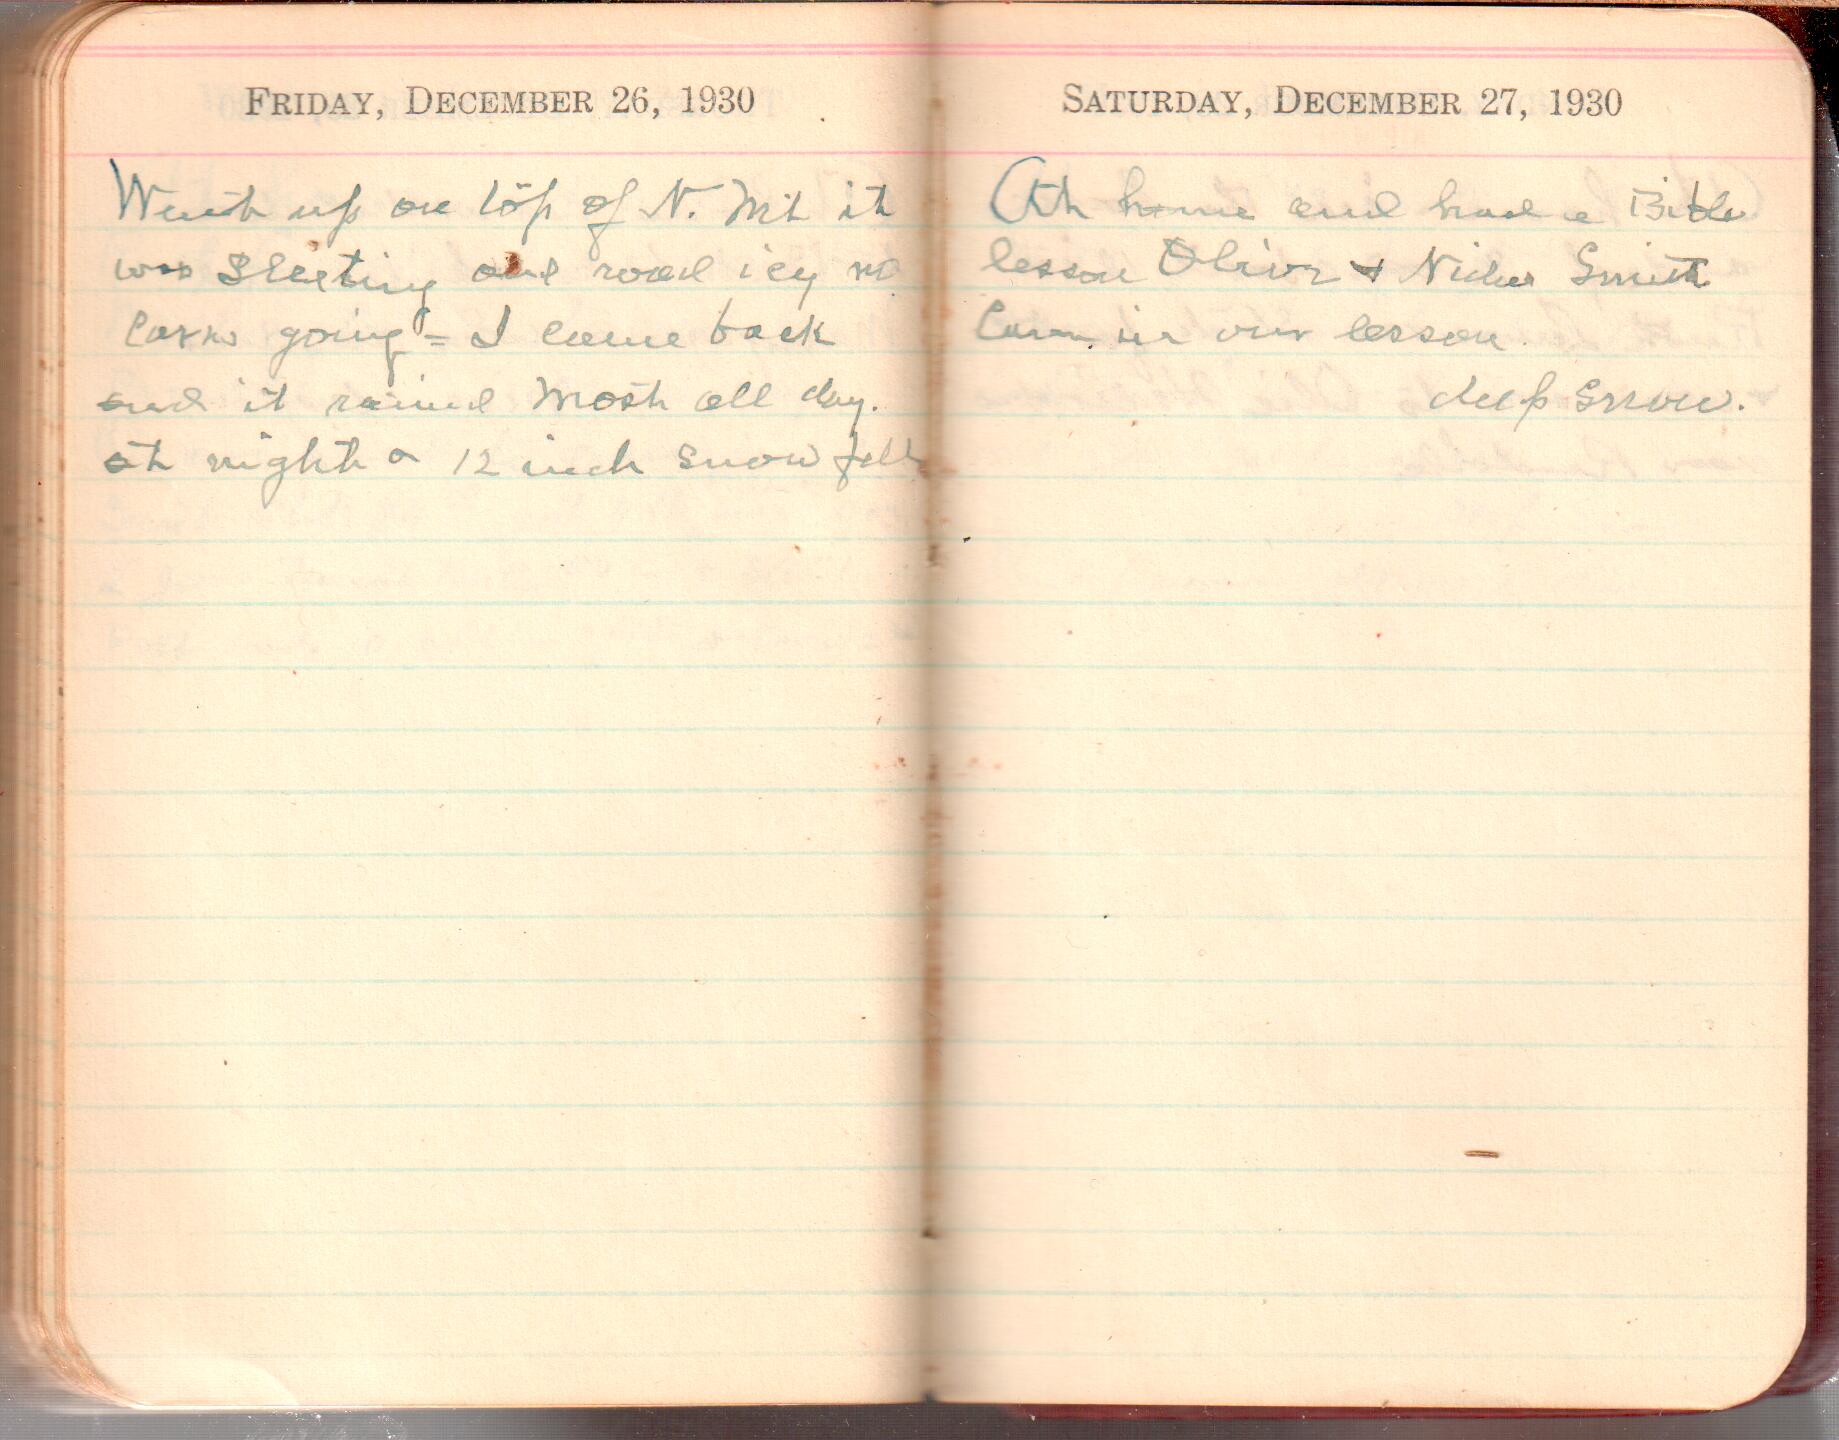 FRIDAY, DECEMBER 26, 1930
Went up on top of N. Mt it
was Sleeting and road icy no
cars going = I came back
and it rained most all day.
at night a 12 inch snow fell
SATURDAY, DECEMBER 27, 1930
At home and had a Bible
lesson Oliver & Smith
Came in our lesson.
deep snow.